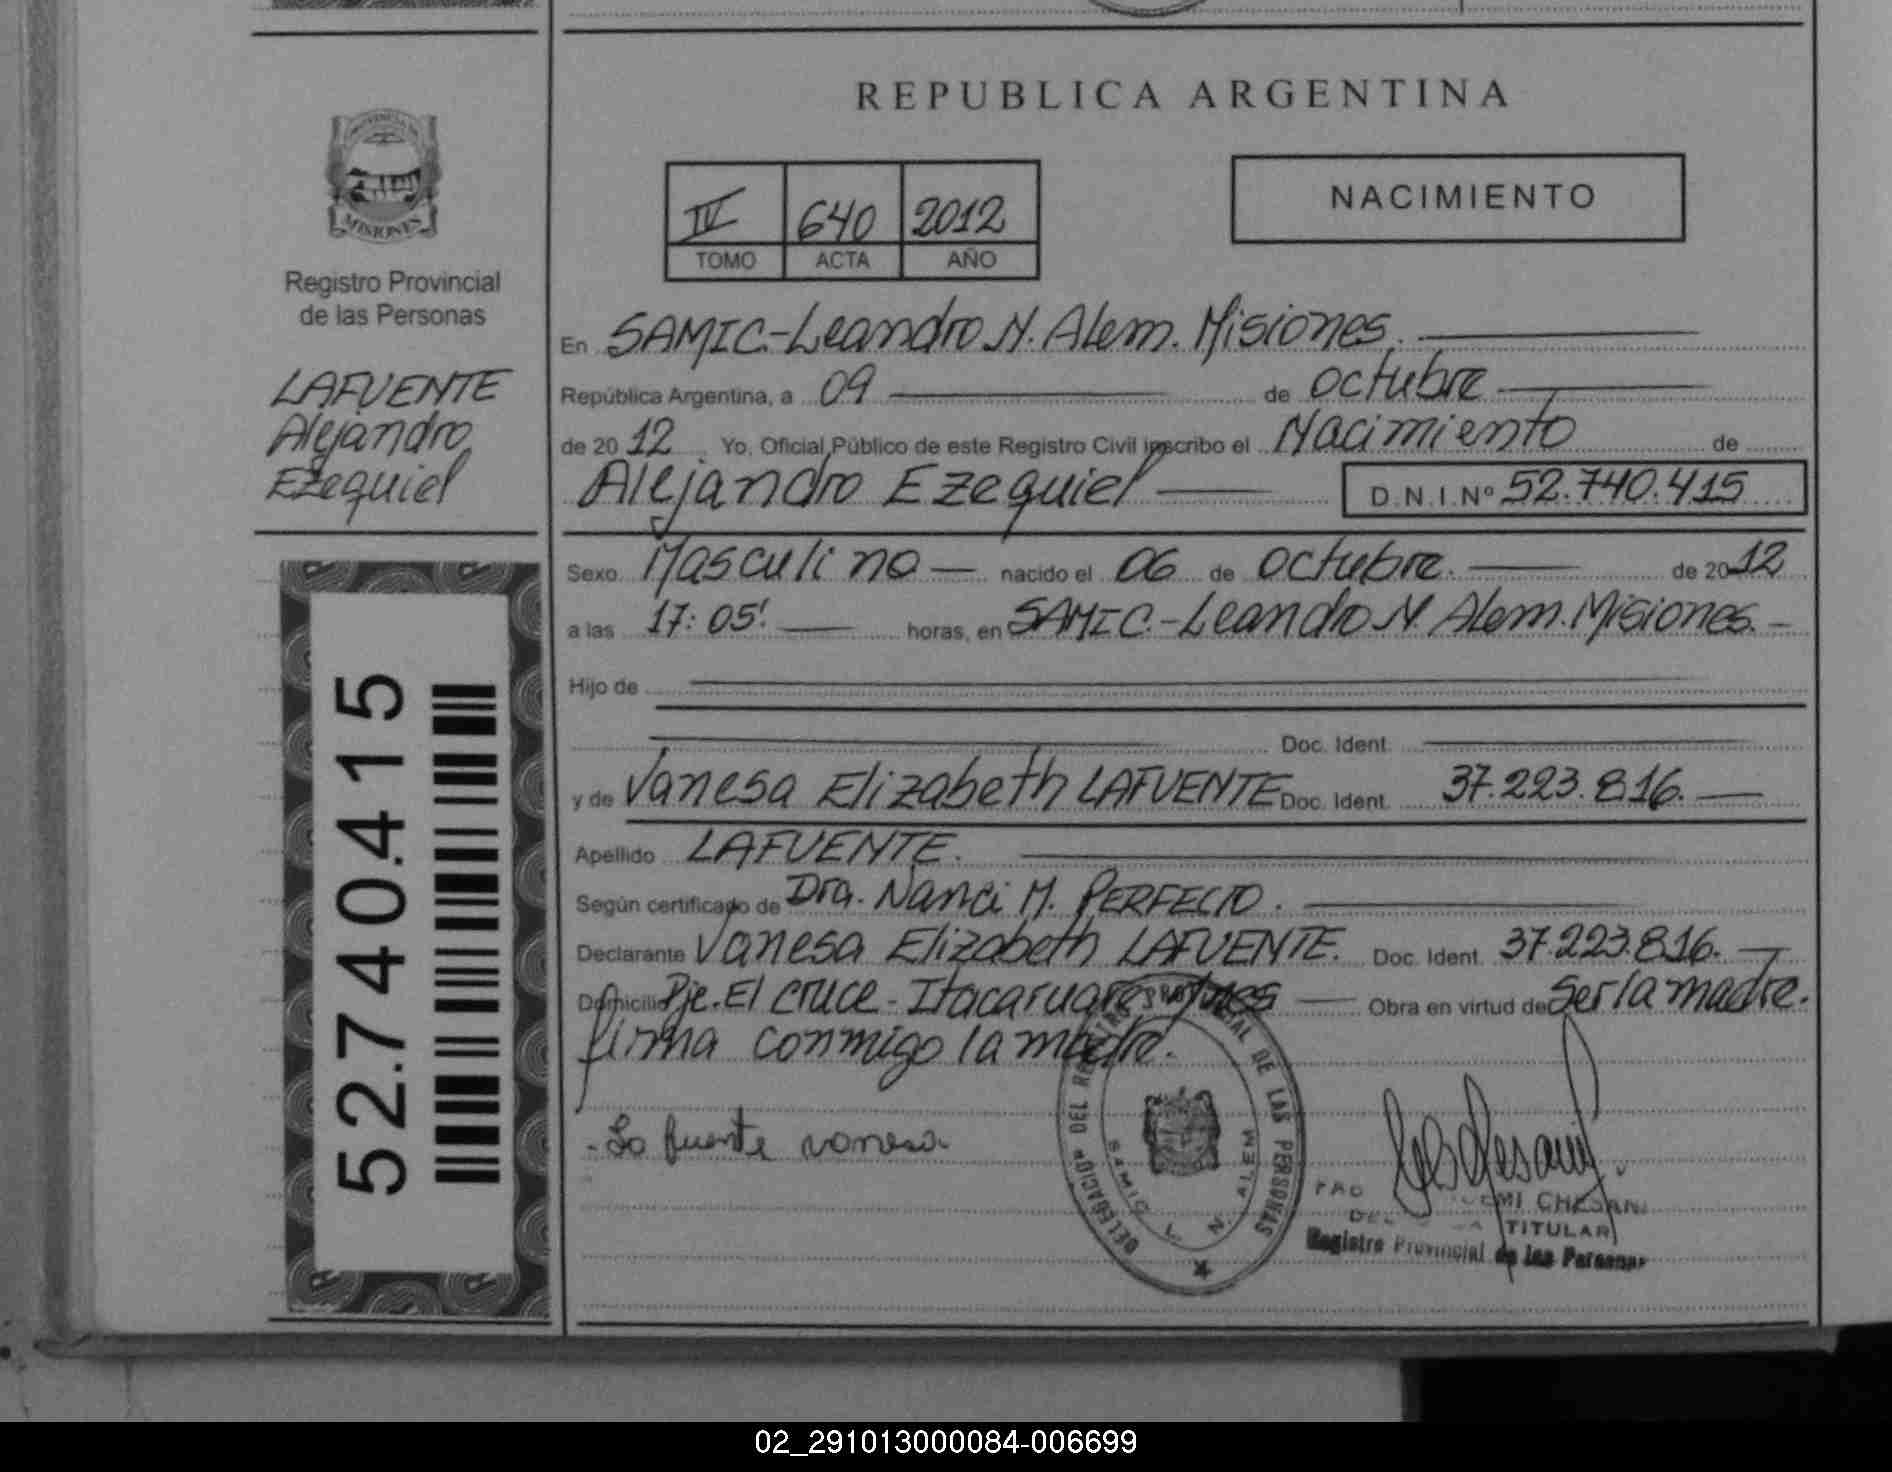 REPUBLICA ARGENTINA
PROVINCIA DE
MISIONES
Registro Provincial
de las Personas
LAFUENTE
Alejandro
Ezequiel
52.740.415
IV 640 2012
TOMO ACTA AÑO
NACIMIENTO
En SAMIC.-Leandro N. Alem. Misiones.
República Argentina, a 09 de octubre
de 2012. Yo, Oficial Público de este Registro Civil inscribo el Nacimiento de
Alejandro Ezequiel D.N.I.Nº 52.740.415
Sexo Masculino nacido el 06 de octubre. de 2012
a las 17:05' horas, en SAMIC.-Leandro N. Alem. Misiones.
Hijo de
Doc. Ident.
y de Vanesa Elizabeth LAFUENTE Doc. Ident. 37.223.816.
Apellido LAFUENTE.
Según certificado de Dra. Nanci M. PERFECTO.
Declarante Vanesa Elizabeth LAFUENTE. Doc. Ident. 37.223.816.
Domicilio Pje. El Cruce - Itacaruare Mnes Obra en virtud de Ser la madre.
firma conmigo la madre.
- La fuente vanesa
DELEGACION DEL REGISTRO PROVINCIAL DE LAS PERSONAS
SAMIC L. N. ALEM
TITULAR
Registro Provincial de las Personas
02_291013000084-006699